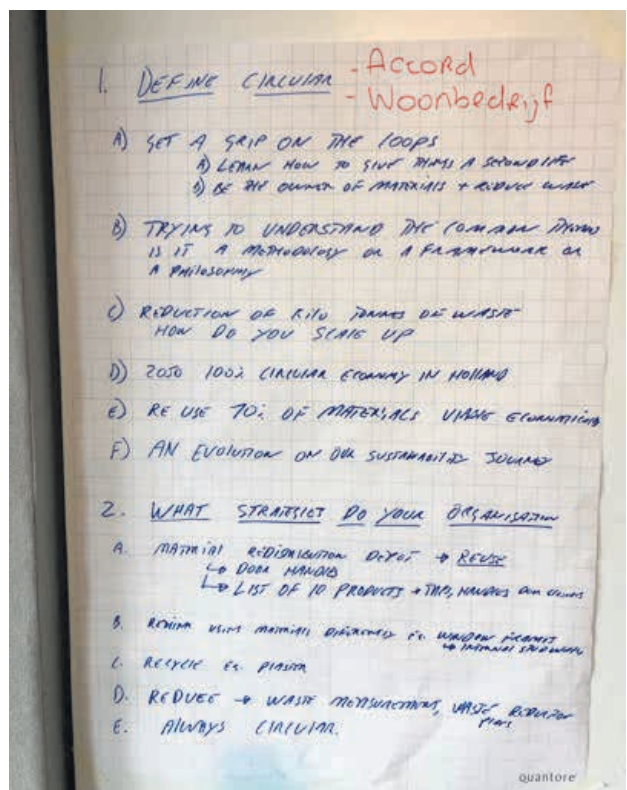 1. DEFINE CIRCULAR
- Accord
- Woonbedrijf
A) GET A GRIP ON THE LOOPS
A) LEARN HOW TO GIVE THINGS A SECOND LIFE
B) BE THE OWNER OF MATERIALS + REDUCE WASTE
B) TRYING TO UNDERSTAND THE COMMON
IS IT A METHODOLOGY OR A FRAMEWORK OR
A PHILOSOPHY
C) REDUCTION OF KILO TONNES OF WASTE
HOW DO YOU SCALE UP
D) 2050 100% CIRCULAR ECONOMY IN HOLLAND
E) RE USE 70% OF MATERIALS
F) AN EVOLUTION ON OUR SUSTAINABILITY JOURNEY
2. WHAT STRATEGIES DO YOUR ORGANISATION
A. MATERIAL REDISTRIBUTION DEPOT → REUSE
↳ DOOR HANDLES
↳ LIST OF 10 PRODUCTS → TAPS, HANDLES
B. USING MATERIALS DIFFERENTLY eg. WINDOW FRAMES
→ INTERNAL
C. RECYCLE eg. PLASTER
D. REDUCE → WASTE MEASUREMENT, WASTE REDUCTION
PLANS
E. ALWAYS CIRCULAR.
quantore